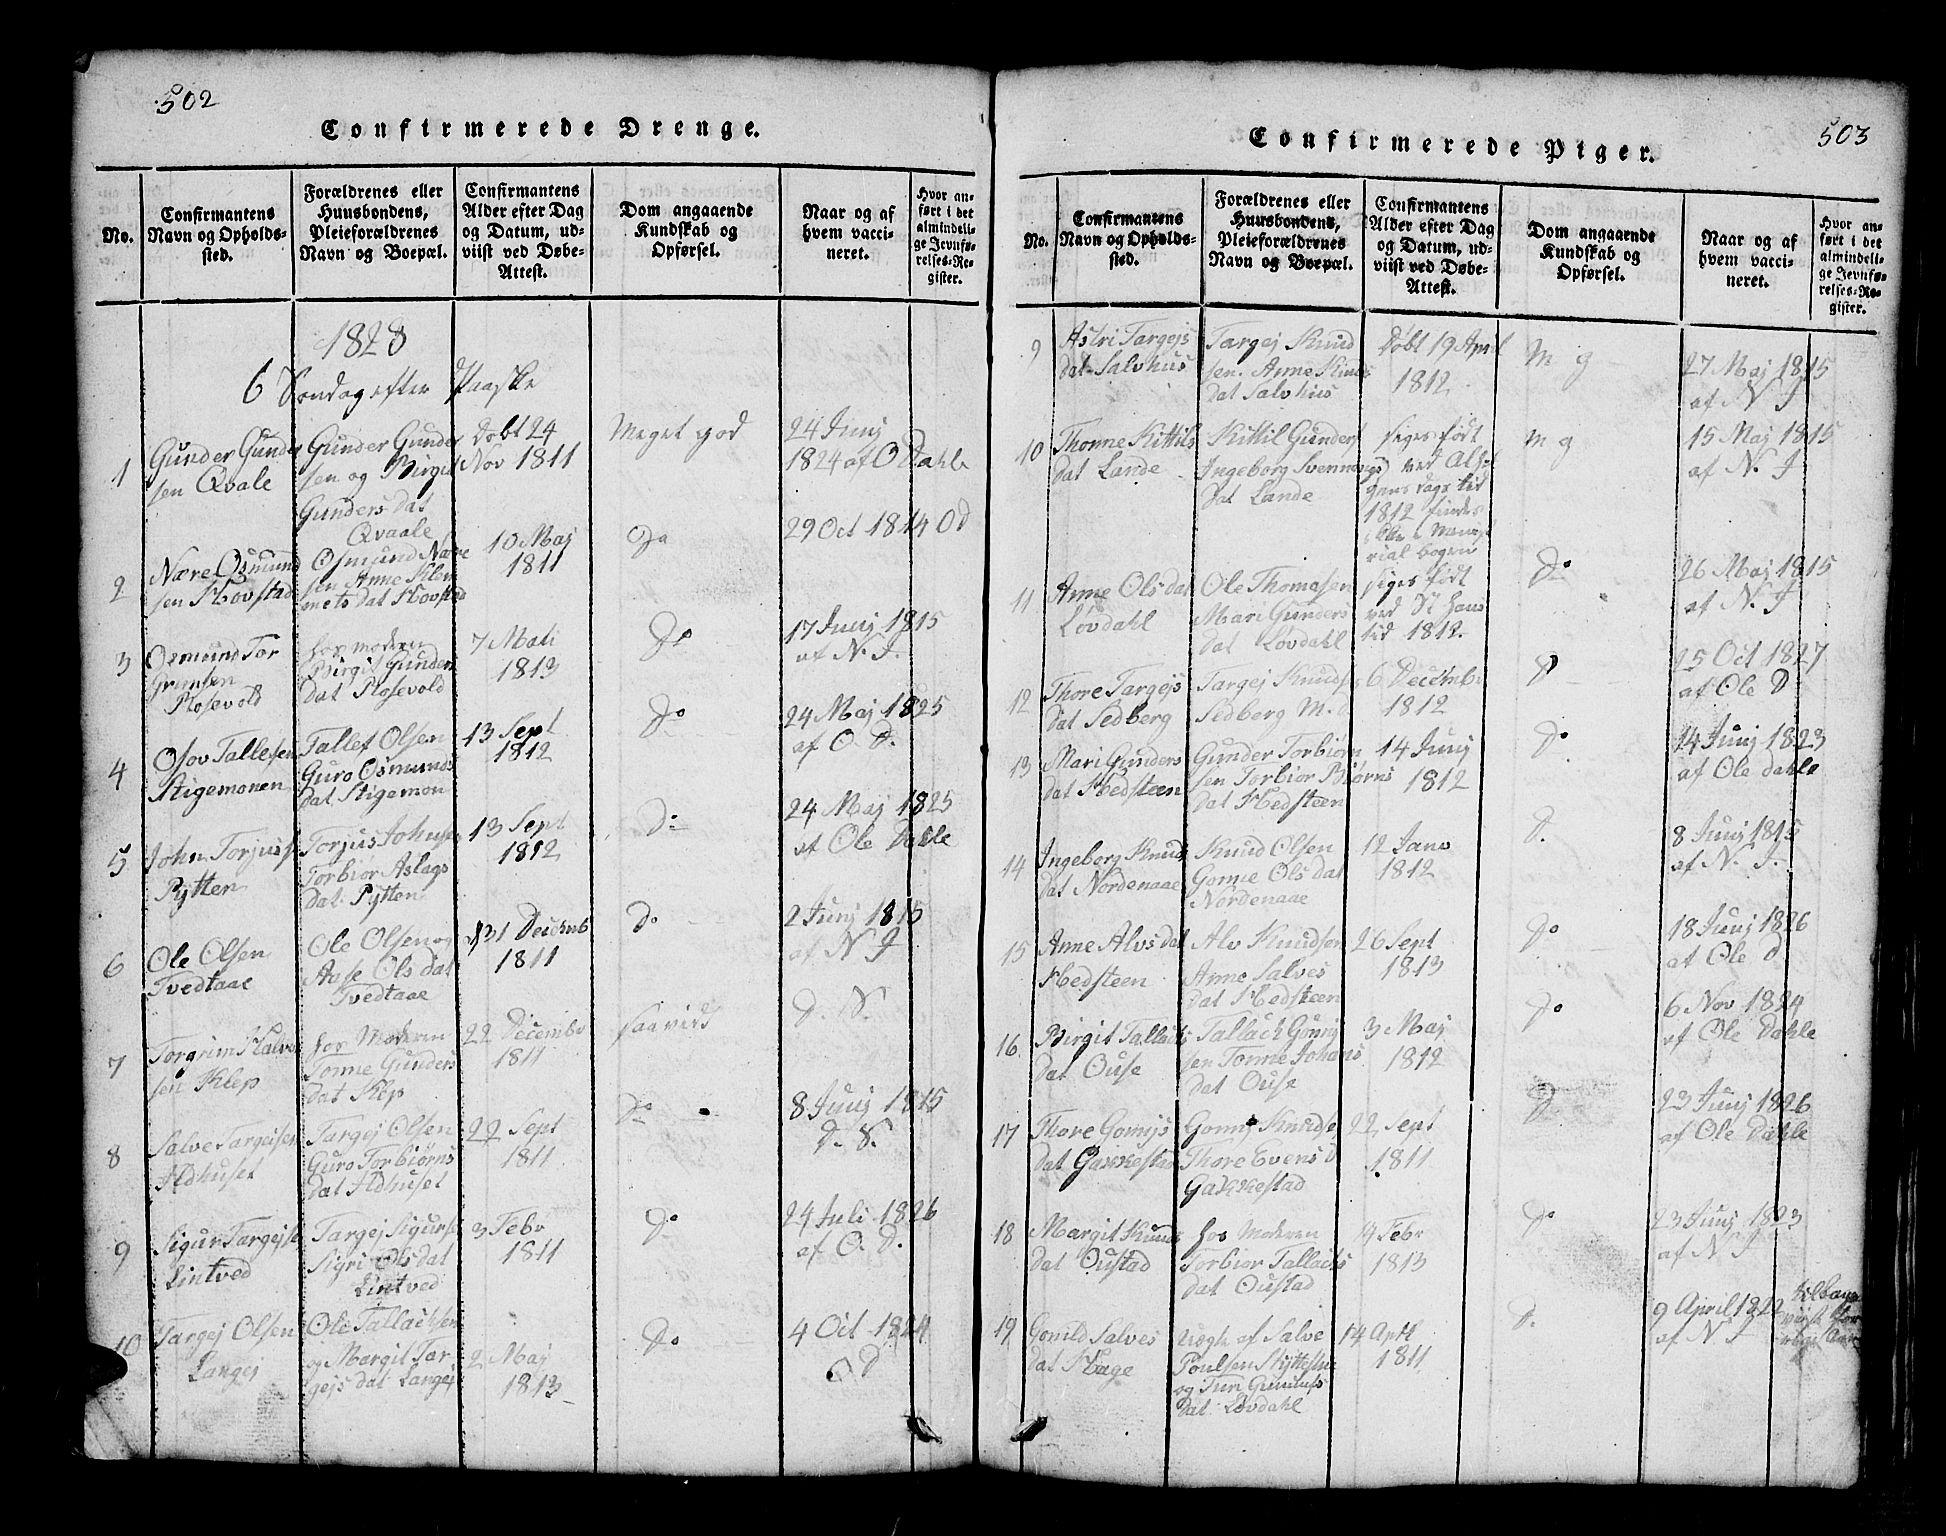 502
Confirmerede Drenge.
No.
Confirmantens
Navn og Opholds-
sted.
Forældrenes eller
Huusbondens,
Pleieforældrenes
Navn og Boepæl.
Confirmantens
Alder efter Dag
og Datum, ud-
viist ved Døbe-
Attest.
Dom angaaende
Kundskab og
Opførsel.
Naar og af
hvem vacci-
neret.
Hvor an-
ført i det
almindeli-
ge Jevnfø-
relses-Re-
gister.
1828
6 Søndag efter Paaske
1
Gunder Gunder
sen Qvale
Gunder Gunder
sen og Birgit
Gunders dat
Qvaale
Døbt 24
Nov 1811
Meget god
24 Junj
1824 af O Dahle
2
Nære Osmund
sen Hovstad
Osmund Nære
sen Anne Klem
mets dat Hovstad
10 Maj
1811
Do
29 Oct 1814 O D
3
Osmund Tor
grimsen
Rosevold
hos moderen
Birgit Gunders
dat Rosevold
7 Mati
1813
Do
17 Junj 1815
af N. J.
4
Osov Tallefsen
Stigemonen
Tallef Olsen
Guro Osmunds
dat Stigemon
13 Sept
1812
Do
24 Maj 1825
af O. D.
5
John Torjuss
Pytten
Torjus Johns
Torbior Aslags
dat Pytten
13 Sept
1812
Do
24 Maj 1825
af Ole Dahle
6
Ole Olsen
Tvedtaae
Ole Olsen og
Aase Ols dat
Tvedtaae
31 Decemb
1811
Do
2 Junj 1815
af N J
7
Torgrim Halvor
sen Klep
hos Moderen
Tonne Gunders
dat Klep
22 Decembr
1811
saavidt
D. S.
8
Salve Targeisen
Ildhuset
Targej Olsen
Guro Torbiørns
dat Ildhuset
22 Sept
1811
Do
8 Junj 1815
D. S.
9
Sigur Targejsen
Lintved
Targej Sigurs
Sigri Ols dat
Lintved
3 Febr
1811
Do
24 Juli 1826
af O. D.
10
Targej Olsen
Langej
Ole Tallachsen
og Margit Tar
gejs dat Langej
2 Maj
1813
Do
4 Oct 1824
O D
503
Confirmerede Piger.
No.
Confirmantens
Navn og Opholds-
sted.
Forældrenes eller
Huusbondens,
Pleieforældrenes
Navn og Boepæl.
Confirmantens
Alder efter Dag
og Datum, ud-
viist ved Døbe-
Attest.
Dom angaaende
Kundskab og
Opførsel.
Naar og af
hvem vacci-
neret.
Hvor an-
ført i det
almindeli-
ge Jevnfø-
relses-Re-
gister.
9
Astri Targejs
dat Salvhus
Targej Knud
sen. Anne Knuds
dat Salvhus
Døbt 19 April
1812
M g
27 Maj 1815
af N J
10
Thonne Kittils
dat Lande
Kittil Gunders
Ingeborg Svennungs
dat Lande
siges født
ved Alhel
gens dags tid
1812 findes
ikke i Minist
rial bogen
m g
15 Maj 1815
af N. J
11
Anne Ols dat
Lovdahl
Ole Thomasen
Mari Gunders
dat Lovdahl
siges født
ved St Hans
tid 1812.
Do
26 Maj 1815
af N. J
12
Thore Targejs
dat Sedberg
Targej Knuds
Sedberg M.
6 Decembr
1812
D
25 Oct 1827
af Ole D
13
Mari Gunders
dat Hedsteen
Gunder Torbiørn
sen Torbior Biørns
dat Hedsteen
14 Junj
1812
Do
14 Junj 1823
af Ole Dahle
14
Ingeborg Knuds
dat Nordenaae
Knud Olsen
Gonne Ols dat
Nordenaae
12 Janv
1812
D.
8 Junj 1815
af N. J.
15
Anne Alvs dat
Hedsteen
Alv Knudsen
Anne Salves
dat Hedsteen
26 Sept
1813
Do
18 Junj 1826
af Ole D
16.
Birgit Tallachs
dat Ouse
Tallach Gonnj
sen Tonne Johans
dat Ouse
3 Maj
1812
Do
6 Nov 1824
af Ole Dahle
17
Thore Gonnjs
dat Gakkestad
Gonnj Knuds
Thore Evens D
Gakkestad
22 Sept
1811
D
23 Junj 1826
af Ole Dahle
18
Margit Knuds
dat Oustad
hos Moderen
Torbior Tallachs
dat Oustad
19 Febr
1813
Do
23 Junj 1823
af N J
19
Gonild Salves
dat Hage
ægte af Salve
Poulsen
og Turi
dat Lovdahl
14 Aprl
1811
D.
9 April 1822
af N J
tilbage
viist for
rige Aar